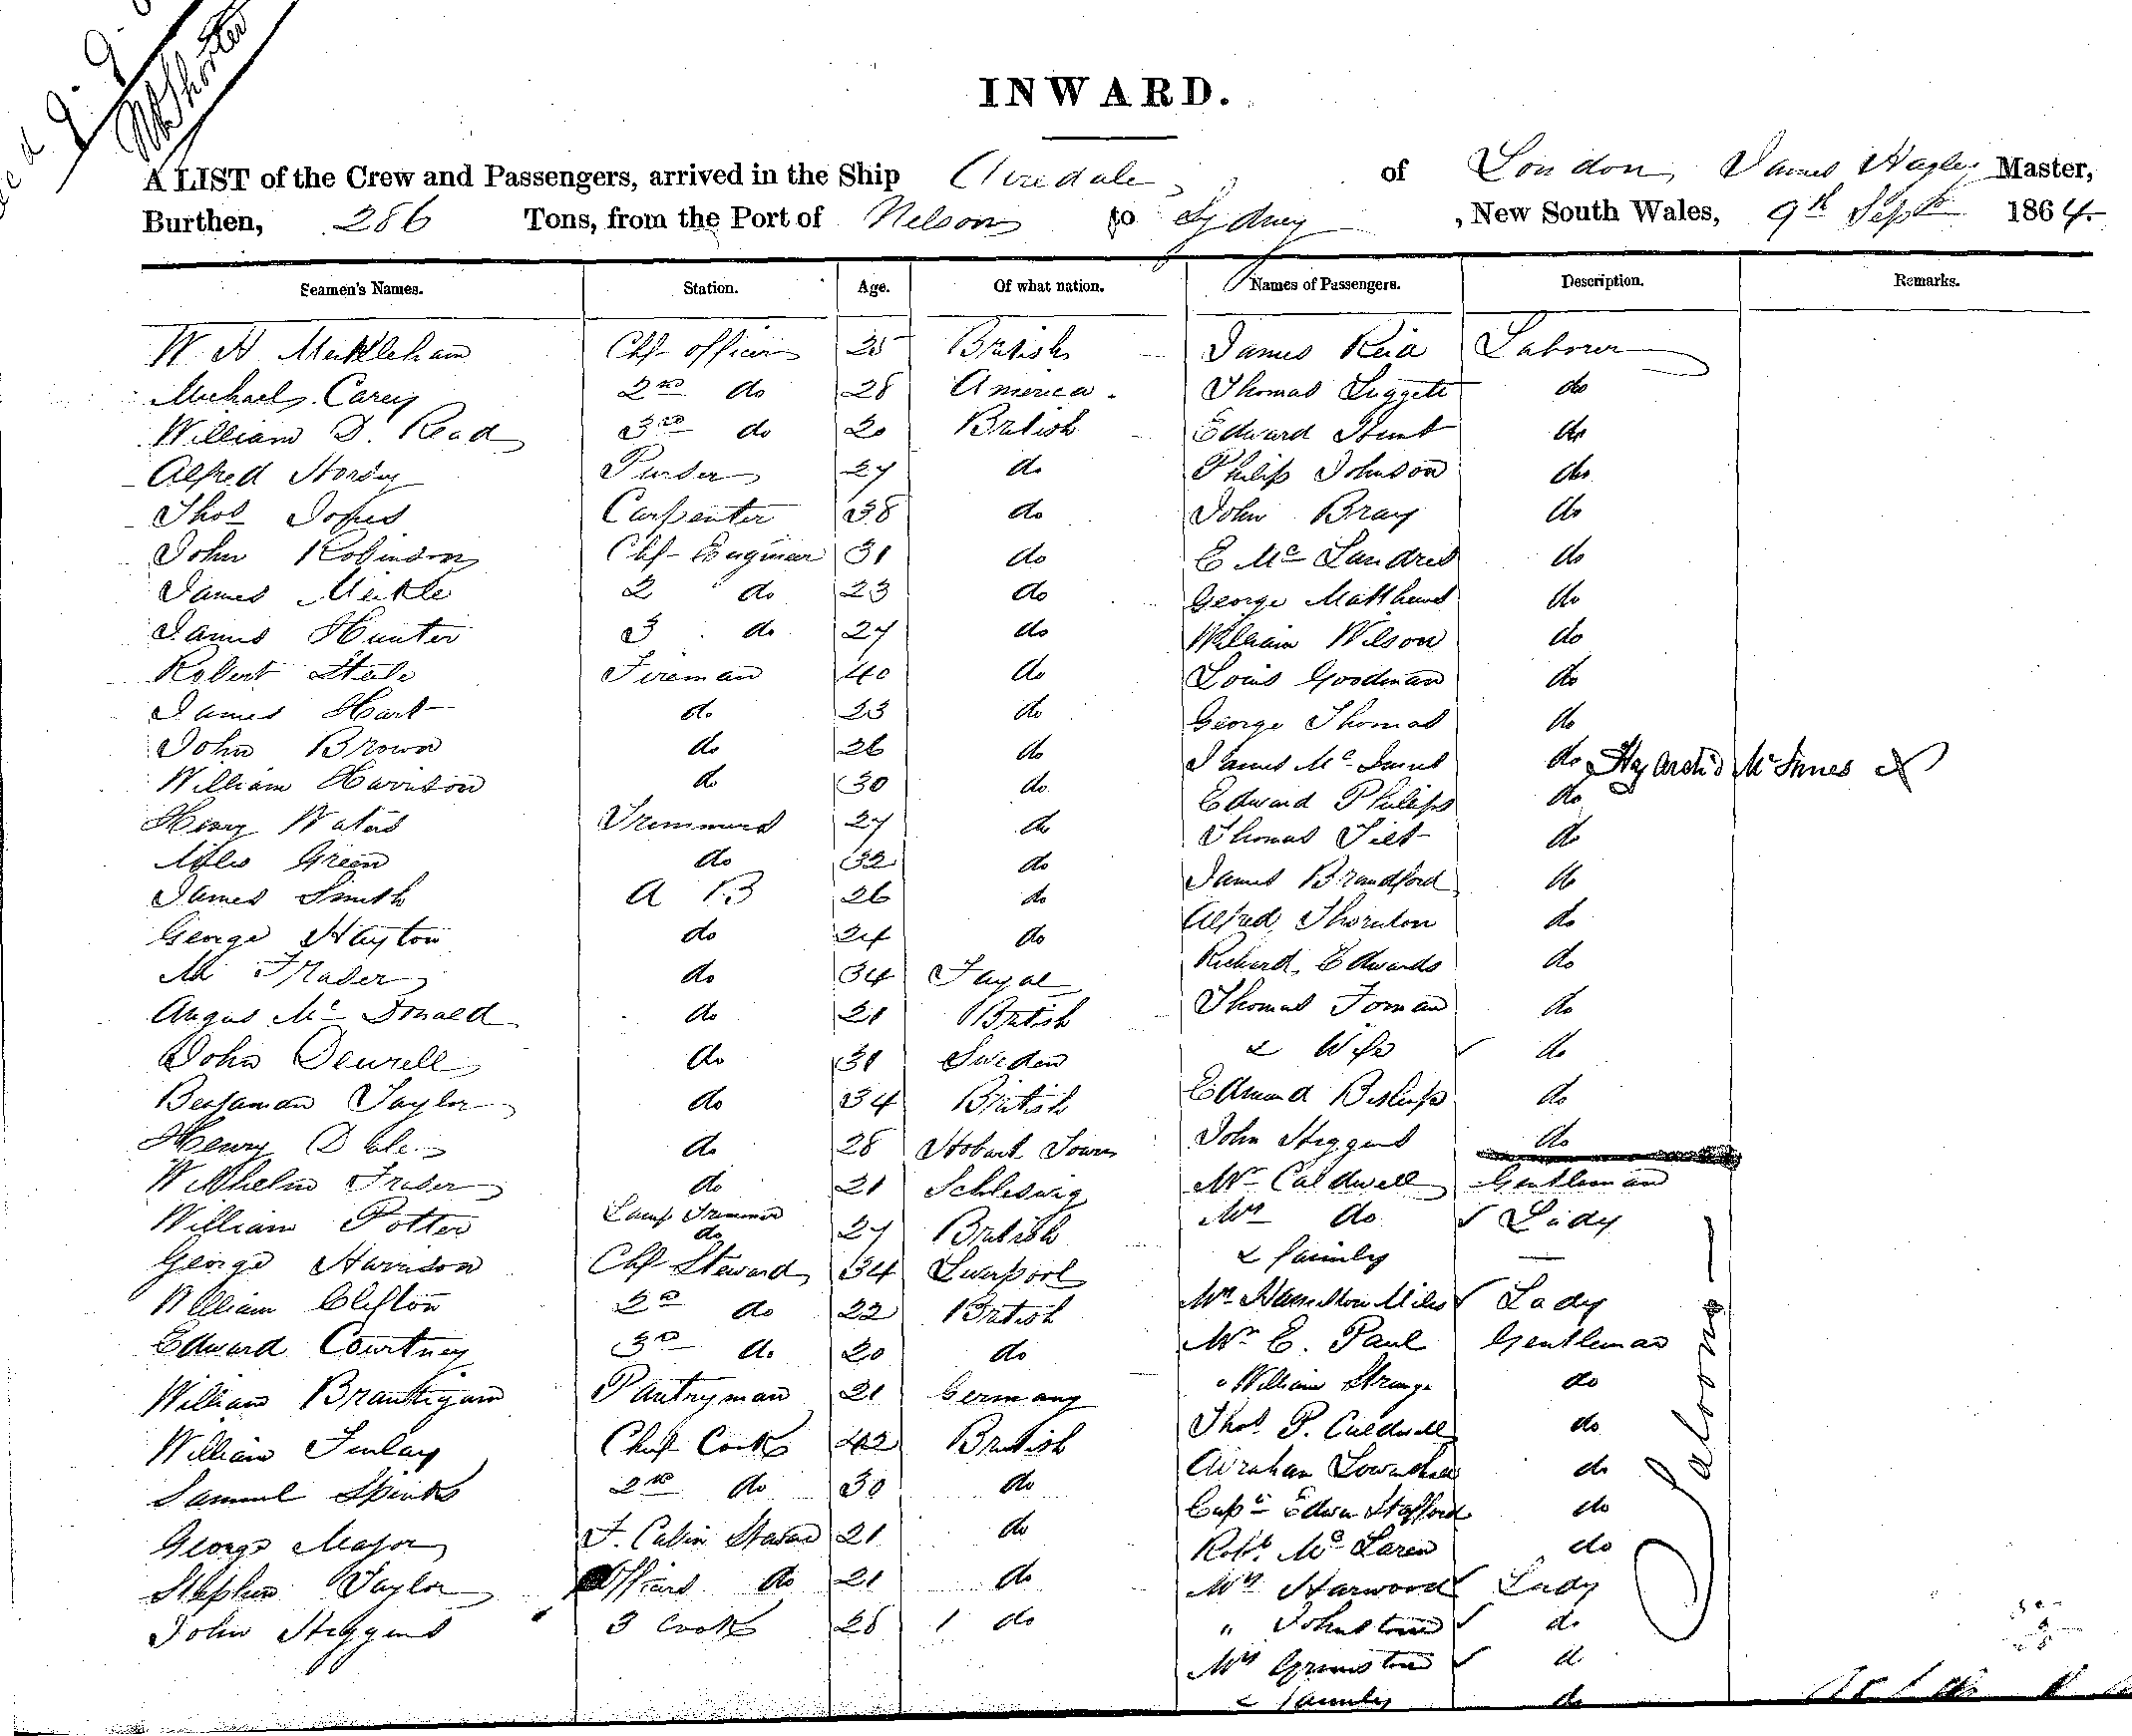 INWARD.
A LIST of the Crew and Passengers, arrived in the Ship Airedale, of London, James Hagley Master,
Burthen, 286 Tons, from the Port of Nelson to Sydney, New South Wales, 9th Septr 1864.
Seamen's Names. Station. Age. Of what nation. Names of Passengers. Description. Remarks.
W H Meikleham Chf officer 25 British James Reid Laborer
Michael Carey 2nd do 28 America. Thomas Liggett do
William D. Read 3rd do 20 British Edward Hunt do
Alfred Horsey Purser 27 do Philip Johnson do
Thos Jones Carpenter 38 do John Bray do
John Robinson Chf Engineer 31 do E Mc Landres do
James Meikle 2 do 23 do George Matthews do
James Hunter 3 do 27 do William Wilson do
Robert Steele Fireman 40 do Louis Goodman do
James Hart do 23 do George Thomas do
John Brown do 26 do James Mc Innes do Archd McInnes
William Harrison do 30 do Edward Philips do
Henry Waters Trimmers 27 do Thomas Tilt do
Miles Green do 32 do James Brandford do
James Smith A B 26 do Alfred Thornton do
George Hayton do 24 do Richard Edwards do
M Frader do 34 Fayal Thomas Foman do
Angus Mc Donald do 21 British & Wife do
John Dewrell do 31 Sweden Edmund Bishop do
Benjaman Taylor do 34 British John Higgens do
Henry Dale do 28 Hobart Town Mr Caldwell Gentleman
Wilhelm Frader do 21 Schleswig Mrs do Lady
William Potter Lamp Trimmer do 27 British & family
George Harrison Chf Steward 34 Liverpool Mrs Hamilton Miles Lady
William Clifton 2nd do 22 British Mr E. Paul Gentleman
Edward Courtney 3rd do 20 do " William Strange do
William Brautigam Pantryman 21 Germany Thos P. Caldwell do
William Finlay Chief Cook 42 British Abraham do
Samuel Spinks 2nd do 30 do Capt Edwin Stafford do
George Major F. Cabin Steward 21 do Robt Mc Laren do
Stephen Taylor Officers do 21 do Mrs Harwood Lady
John Higgens 3 Cook 28 do " Johnstone do
Mrs Grimstone do
& family do
Saloon